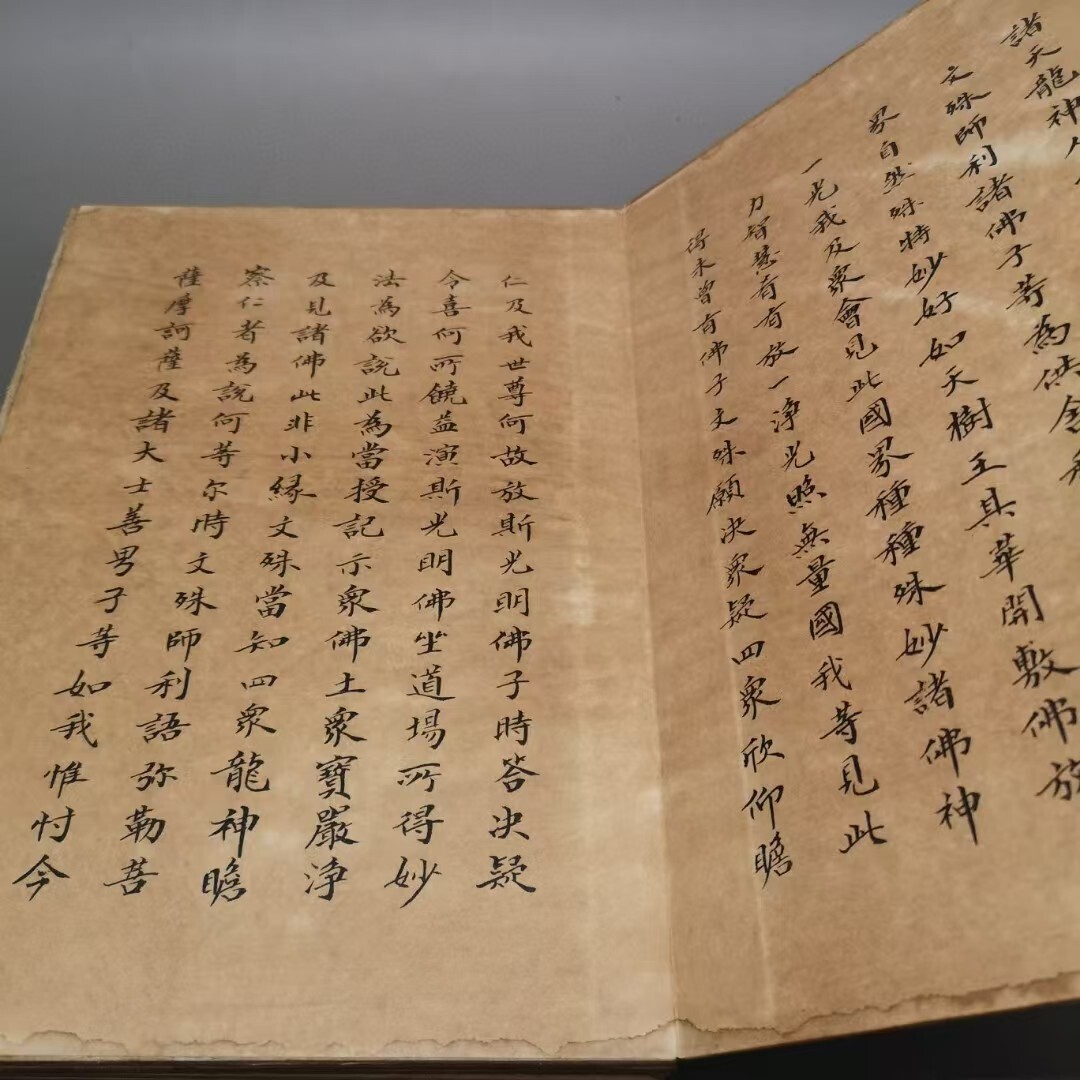 諸天龍神人
文殊師利諸佛子等為供舍
界自然殊特妙好如天樹王其華開敷佛放
一光我及眾會見此國界種種殊妙諸佛神
力智慧希有放一淨光照無量國我等見此
得未曾有佛子文殊願決眾疑四眾欣仰瞻
仁及我世尊何故放斯光明佛子時答決疑
令喜何所饒益演斯光明佛坐道場所得妙
法為欲說此為當授記示眾佛土眾寶嚴淨
及見諸佛此非小緣文殊當知四眾龍神瞻
察仁者為說何等尔時文殊師利語弥勒菩
薩摩訶薩及諸大士善男子等如我惟忖今